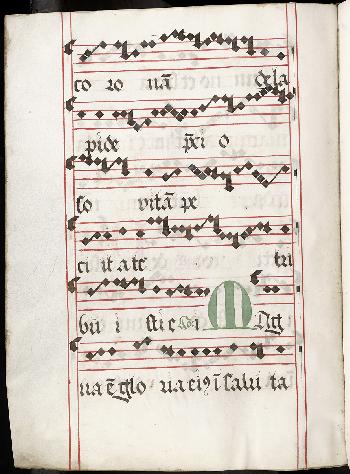 co ro nā de la
pide p̄ci o
so vitā pe
ciit a te tri
bu i sti e i M Ag
na ē glo ria eiꝰ ī salu ta